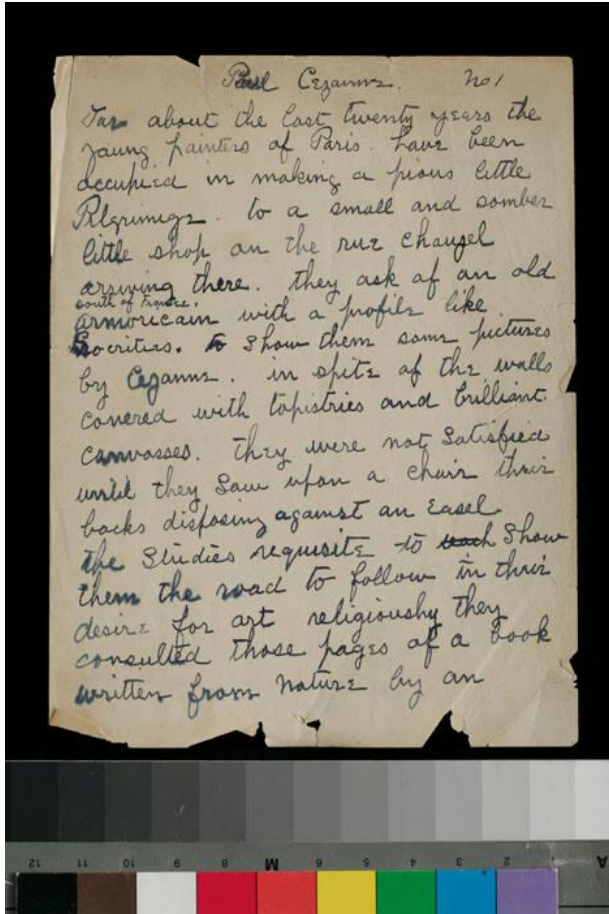 Paul Cezanne. No 1
For about the last twenty years the
young painters of Paris. have been
occupied in making a pious little
Pilgrimige. to a small and somber
little shop on the rue Chauzel
arriving there. they ask of an old
south of France.
armoricain with a profile like
Socrities. to show them some pictures
by Cezanne. in spite of the walls
covered with tapistries and brilliant.
canvasses. they were not satisfied
until they saw upon a chair their
backs disposing against an Easel
the studies requisite to show
them the road to follow in their
desire for art religiously they
consulted those pages of a book
written from nature by an
12 11 10 9 8 M 6 5 4 3 2 1 A